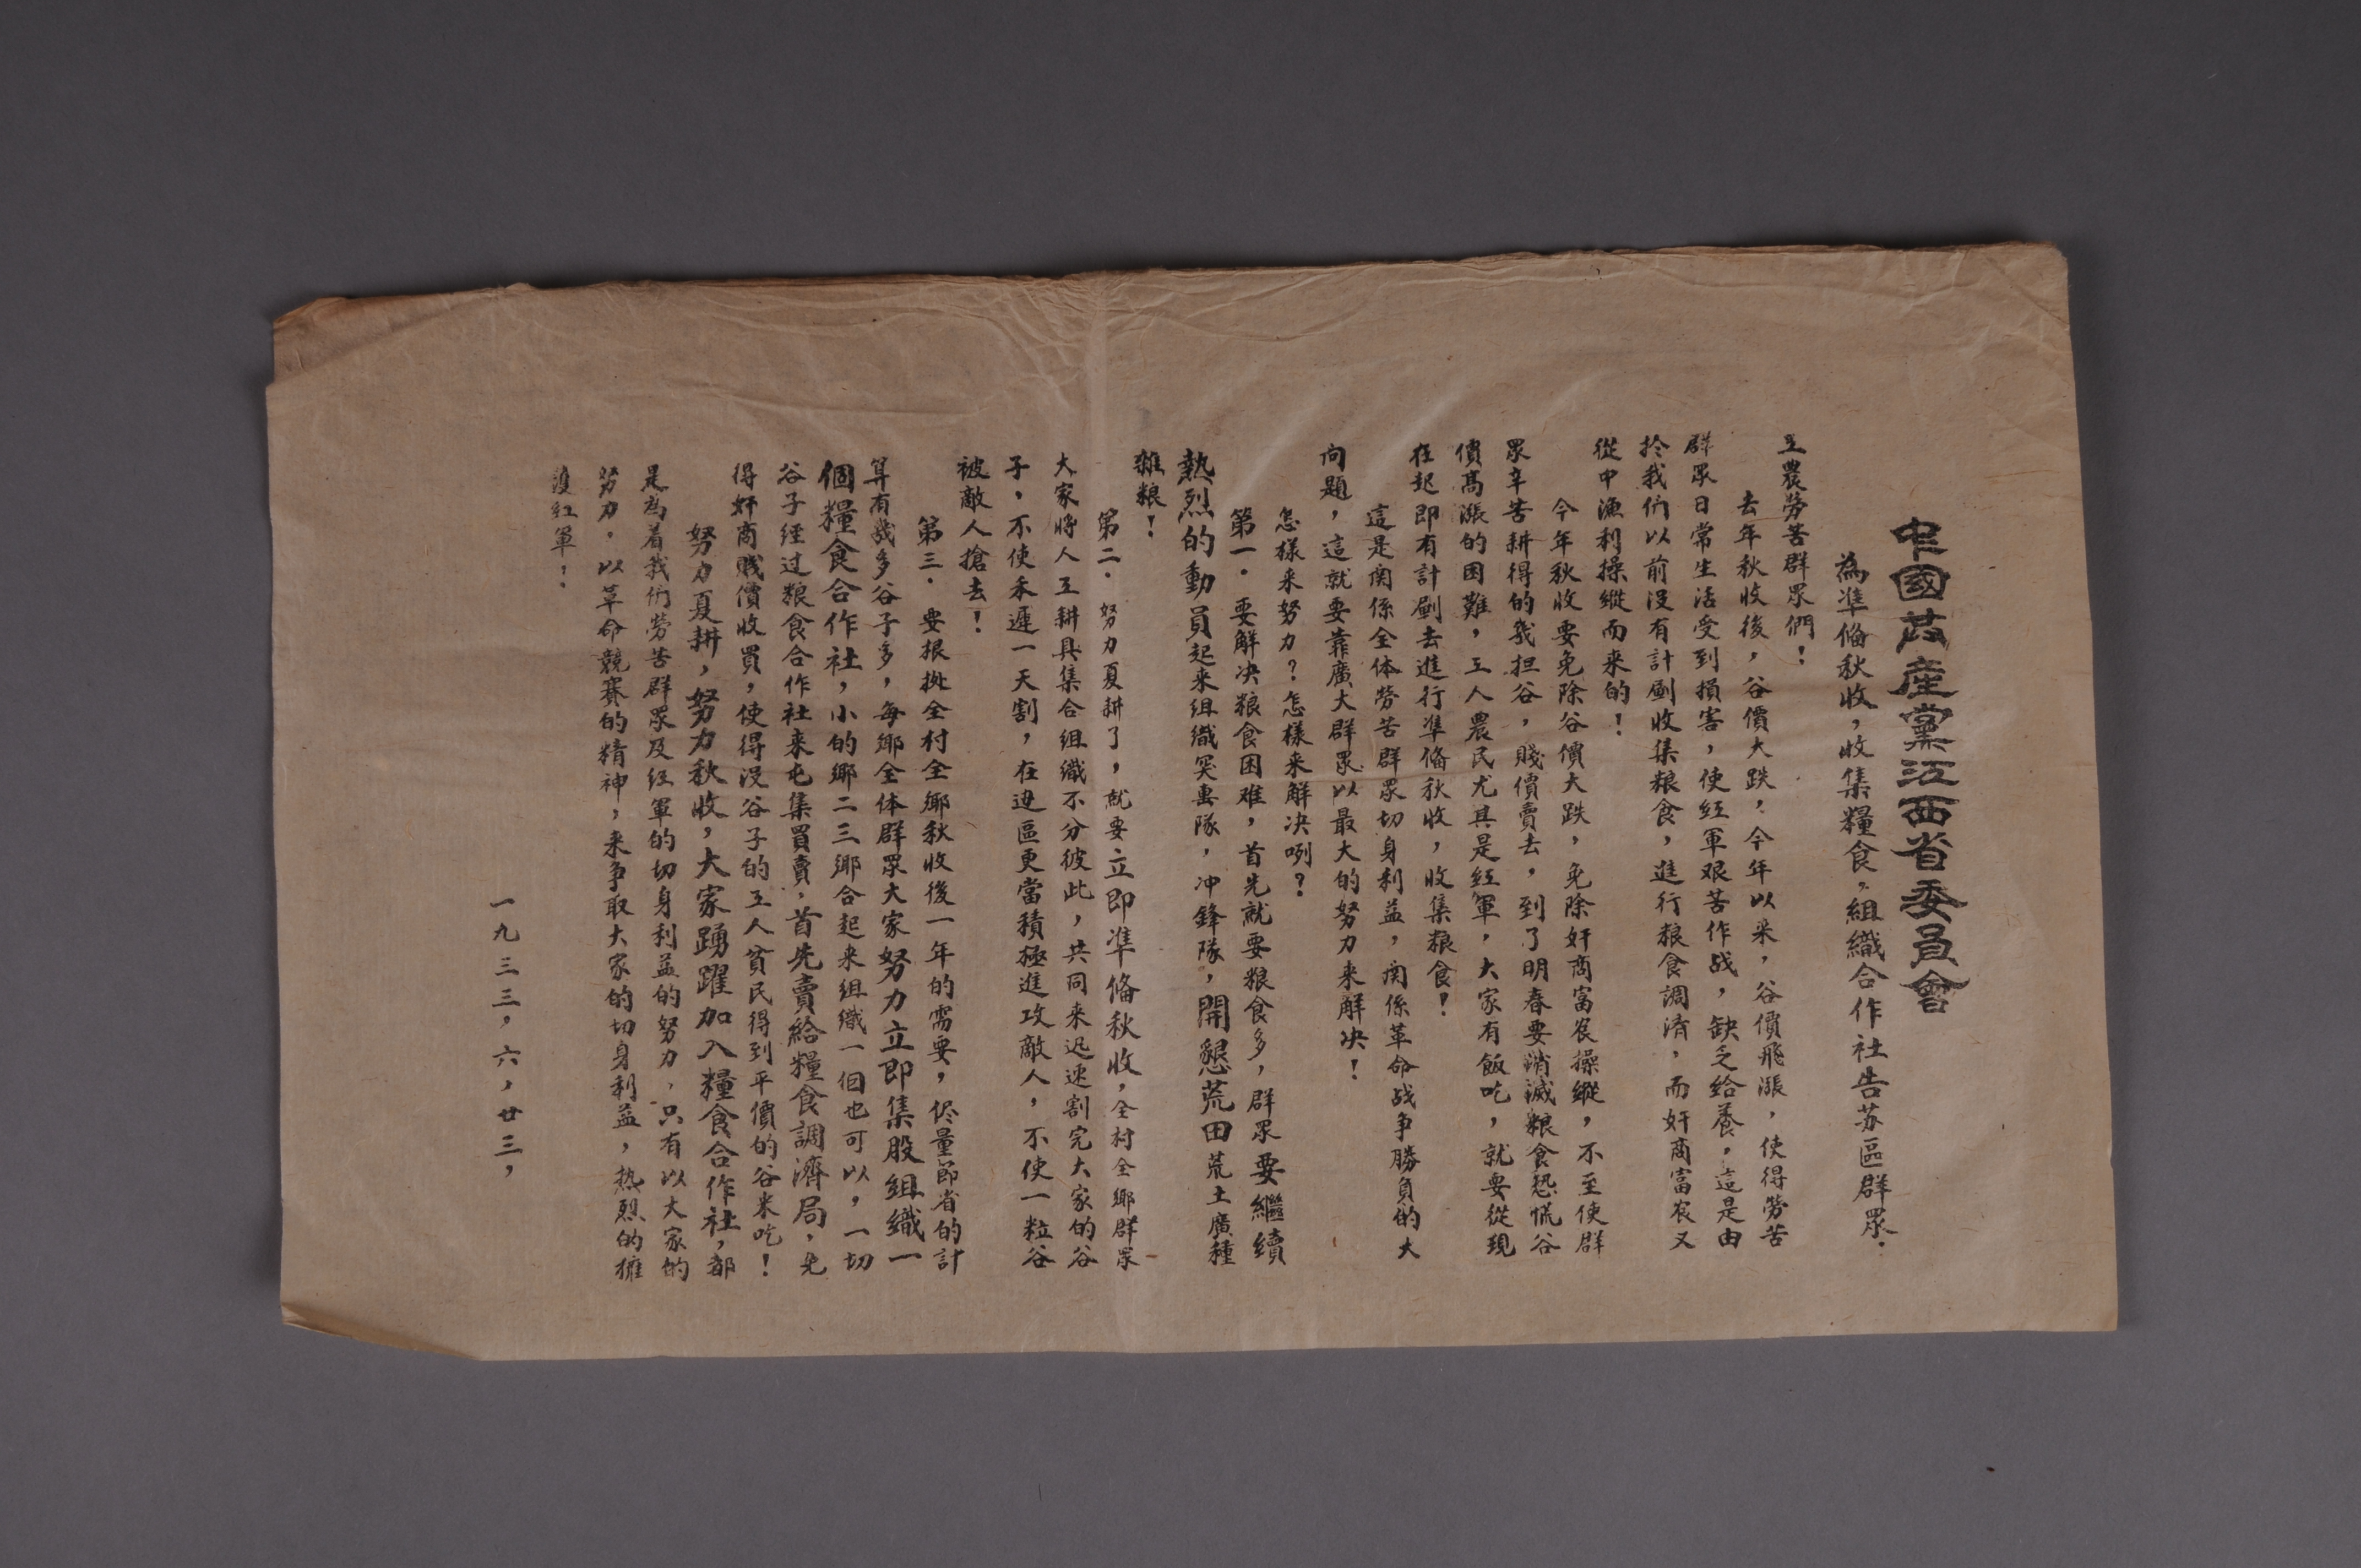 中國共產黨江西省委員會
為準俻秋收，收集糧食，組織合作社告苏區群眾．
工農勞苦群眾們！
去年秋收後，谷價大跌，今年以来，谷價飛漲，使得勞苦
群眾日常生活受到損害，使红軍艰苦作战，缺乏给養，這是由
扵我们以前没有計劃收集粮食，進行粮食調済，而奸商富农又
從中漁利操縱而来的！
今年秋收要免除谷價大跌，免除奸商富农操縱，不至使群
眾辛苦耕得的幾担谷，賤價賣去，到了明春要消滅粮食恐慌谷
價高漲的困難，工人農民尤其是红軍，大家有飯吃，就要從現
在起即有計劃去進行準俻秋收，收集粮食！
這是関係全体勞苦群眾切身利益，関係革命战争勝負的大
问題，這就要靠廣大群眾以最大的努力来解决！
怎樣来努力？怎樣来解决咧？
第一．要解决粮食困难，首先就要粮食多，群眾要繼續
熱烈的動員起来组織突击隊，冲鋒隊，開懇荒田荒土廣種
雜粮！
第二．努力夏耕了，就要立即準俻秋收，全村全鄉群眾
大家將人工耕具集合组織不分彼此，共同来迅速割完大家的谷
子，不使禾遲一天割，在边區更當積極進攻敵人，不使一粒谷
被敵人搶去！
第三．要根据全村全鄉秋收後一年的需要，侭量節省的計
算有幾多谷子多，每鄉全体群眾大家努力立即集股组織一
個糧食合作社，小的鄉二三鄉合起来组織一個也可以，一切
谷子经过粮食合作社来屯集買賣，首先賣給糧食調濟局，免
得奸商賤價收買，使得没谷子的工人貧民得到平價的谷米吃！
努力夏耕，努力秋收，大家踴躍加入糧食合作社，都
是為着我们勞苦群眾及红軍的切身利益的努力，只有以大家的
努力．以革命競賽的精神，来争取大家的切身利益，热烈的擁
護红軍！
一九三三，六，廿三，